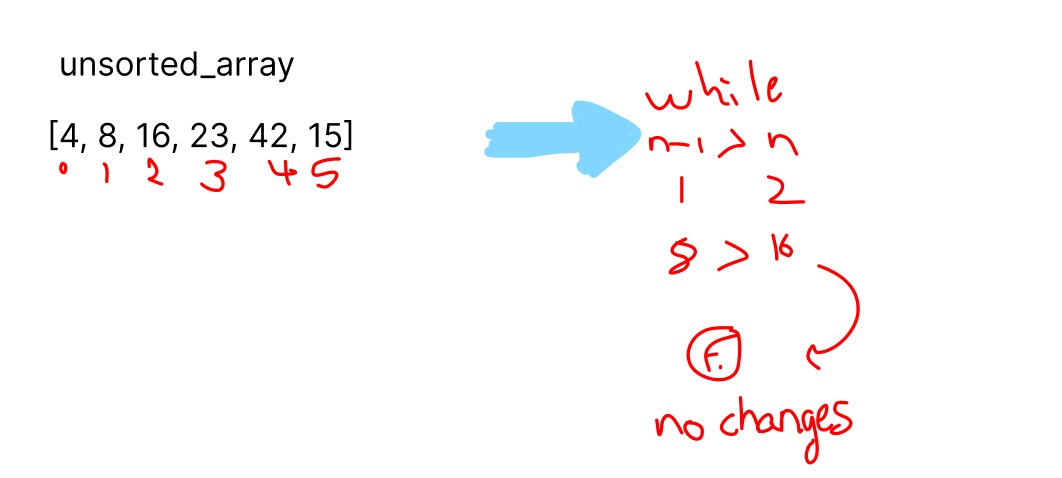 unsorted_array
[4, 8, 16, 23, 42, 15]
0 1 2 3 4 5
while
n-1 > n
1 2
8 > 16
F.
no changes